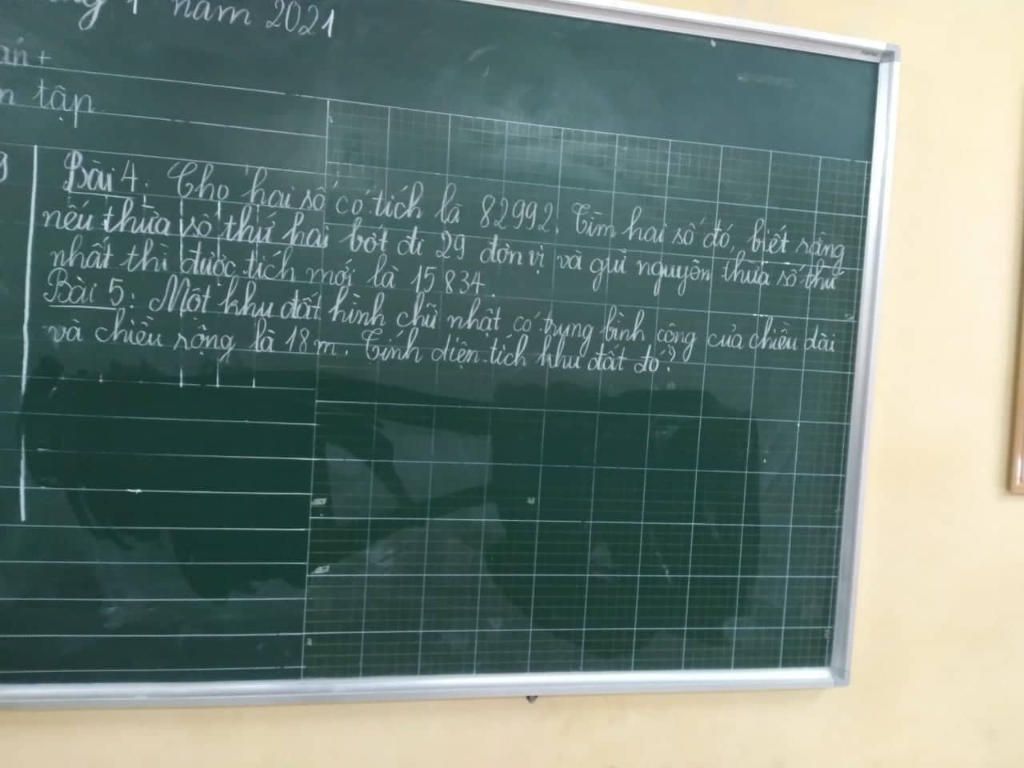 1 năm 2021
tập
Bài 4: Cho hai số có tích là 82992. Tìm hai số đó, biết rằng
nếu thừa số thứ hai bớt đi 29 đơn vị và giữ nguyên thừa số thứ
nhất thì được tích mới là 15834.
Bài 5: Một khu đất hình chữ nhật có trung bình cộng của chiều dài
và chiều rộng là 18m. Tính diện tích khu đất đó?